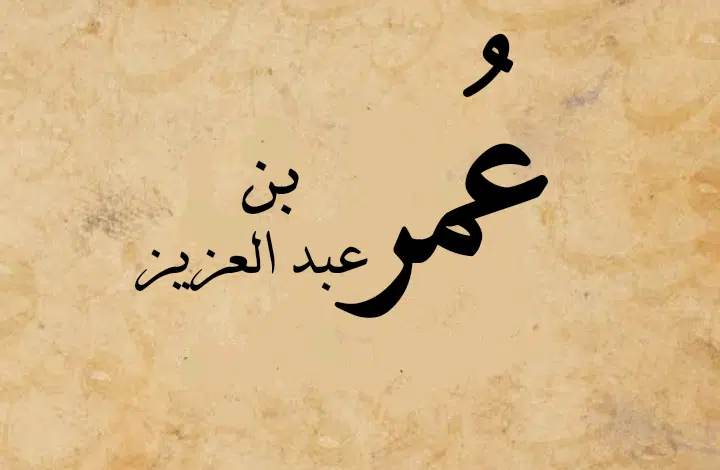 عُمر
بن
عبد العزيز